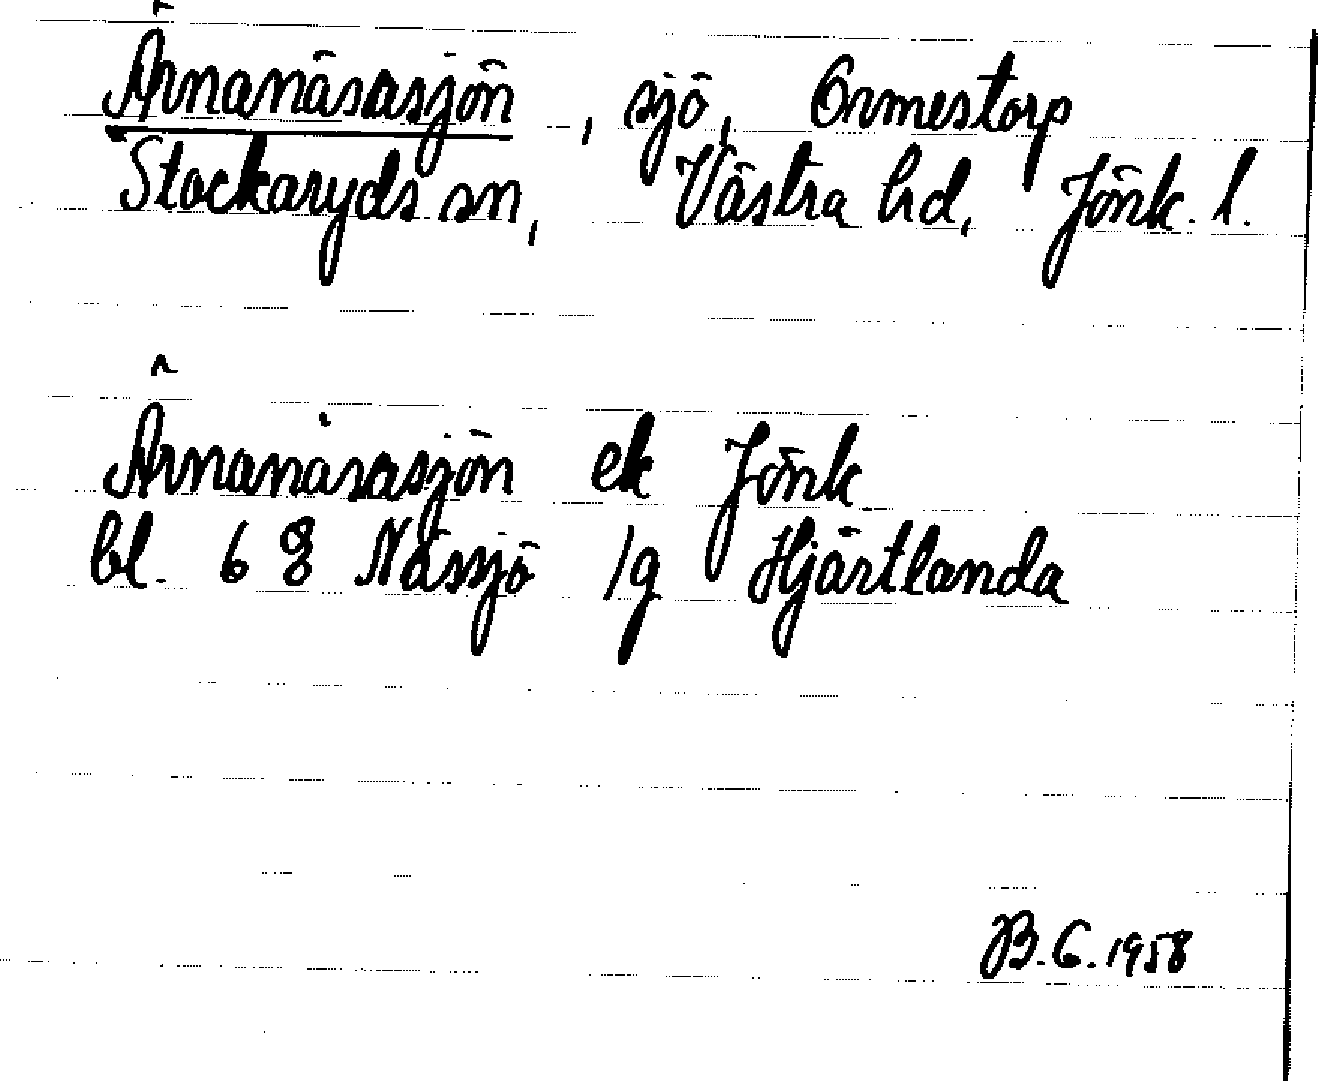 Ärnanäsasjön, sjö, Ormestorp
Stockaryds sn, Västra hd, Jönk. l.
Ärnanäsasjön ek Jönk
bl. 68 Nässjö 19 Hjärtlanda
B.G. 1958